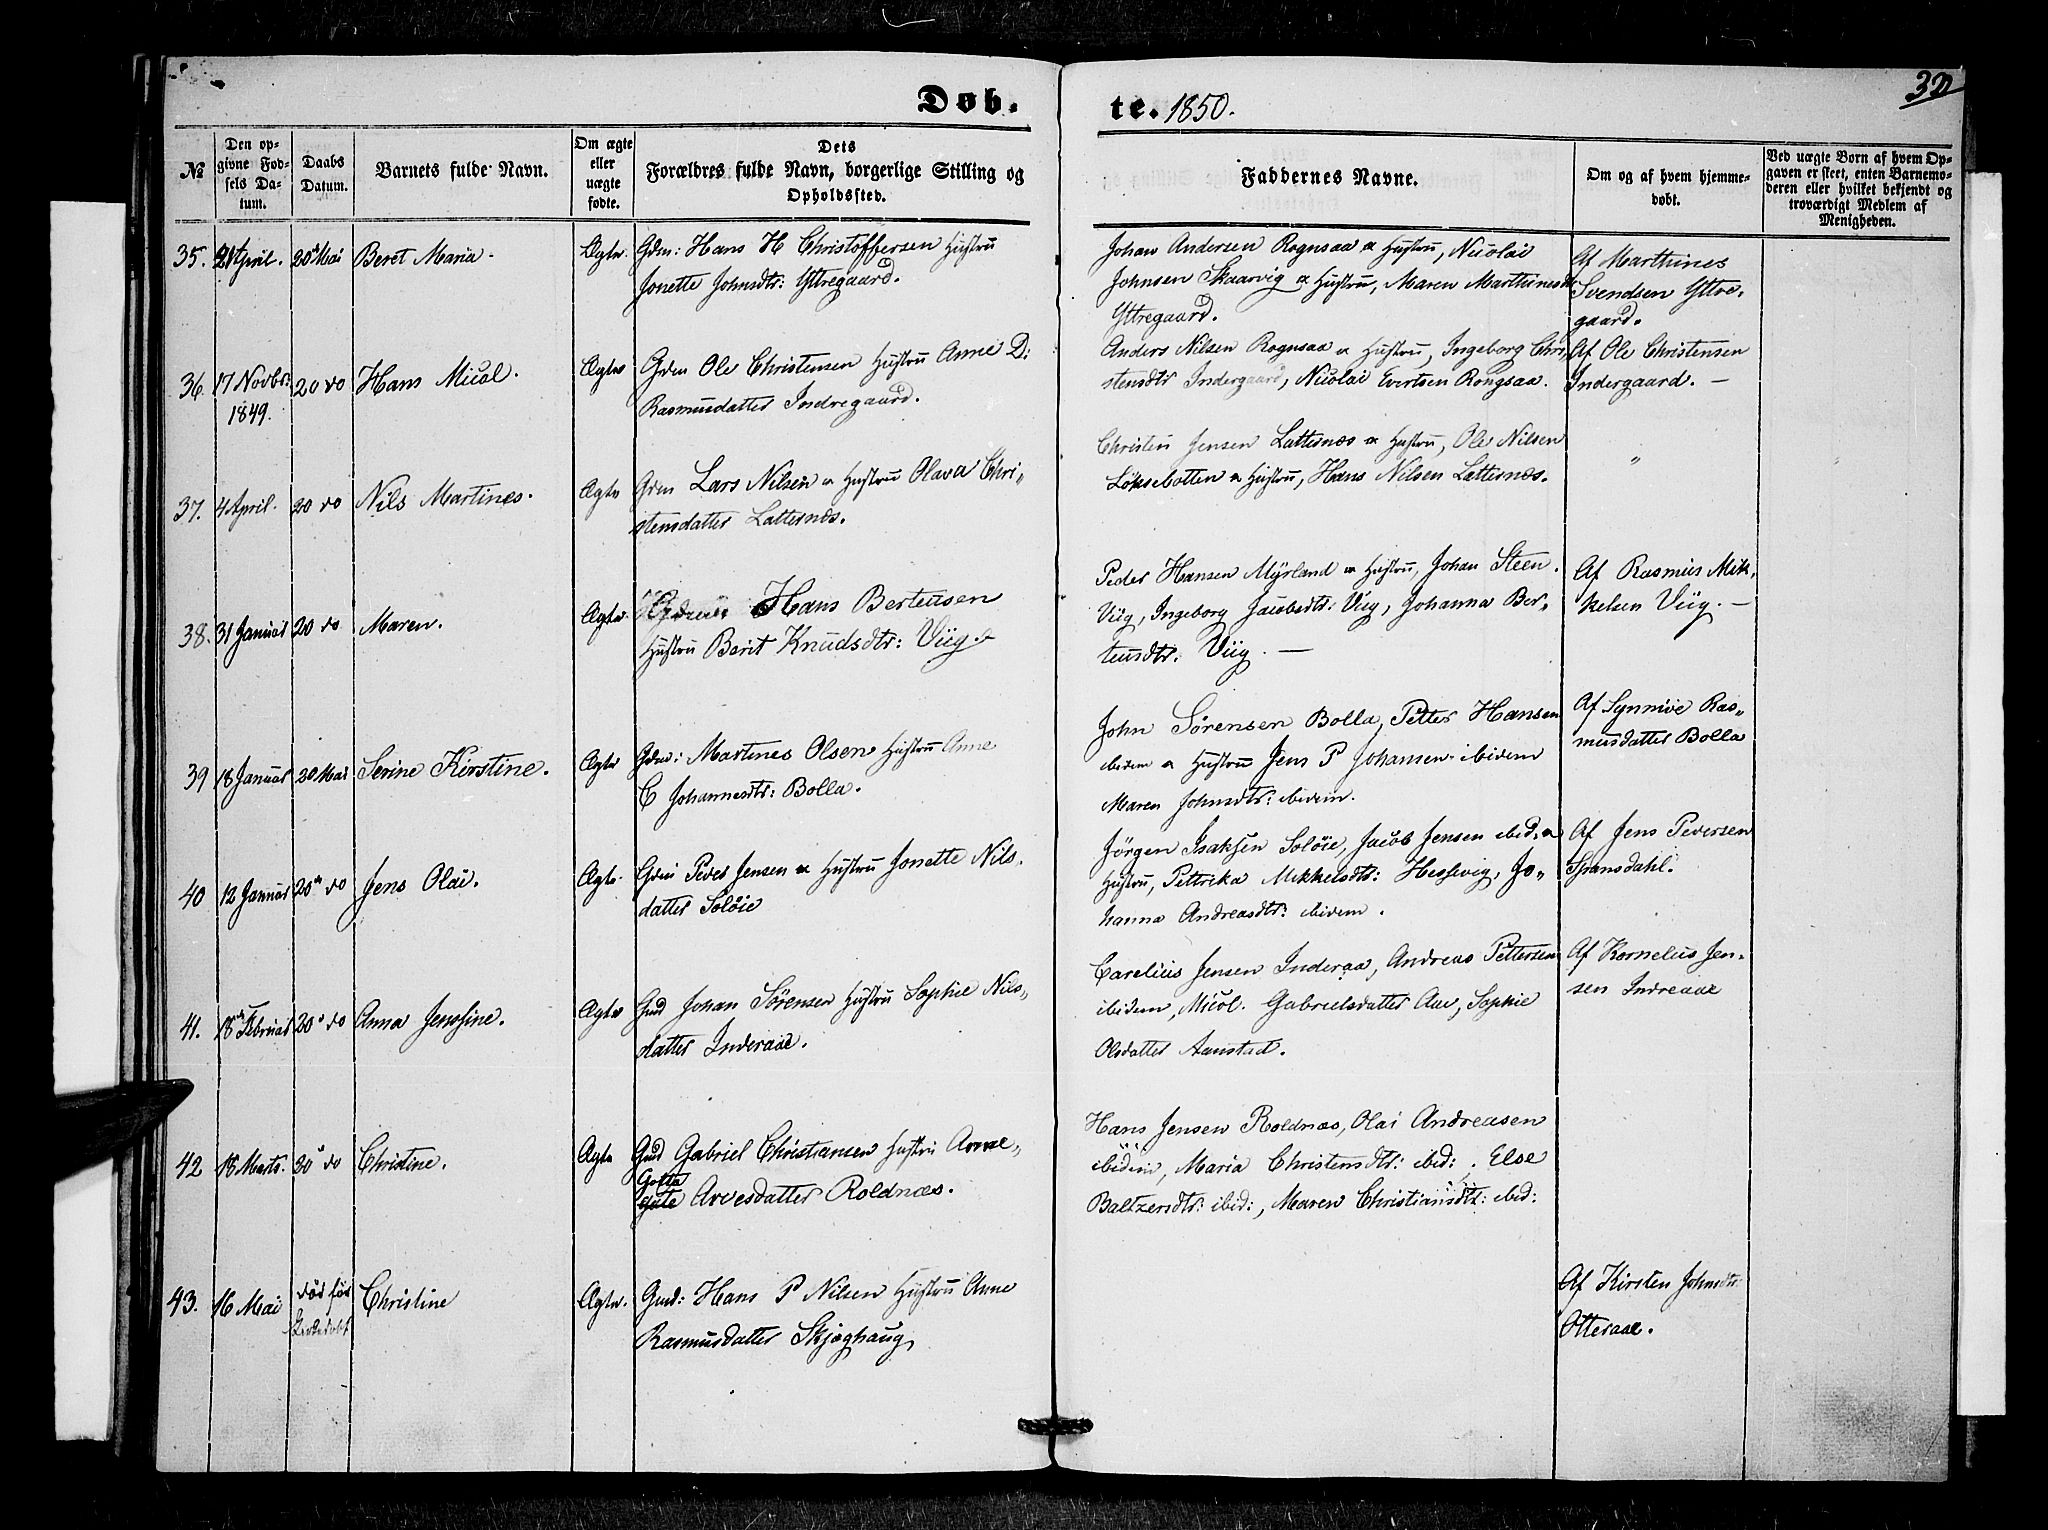 Døb.
te. 1850.
32
№
Den opgivne Fødsels Datum.
Daabs Datum.
Barnets fulde Navn.
Om ægte eller uægte fødte.
Dets Forældres fulde Navn, borgerlige Stilling og Opholdssted.
Faddernes Navne.
Om og af hvem hjemmedøbt.
Ved uægte Børn af hvem Opgaven er skeet, enten Barnemoderen eller hvilket bekjendt og troværdigt Medlem af Menigheden.
35. 21 April. 20 Mai Beret Maria. Ægte. Gdm: Hans H Christoffersen Hustru
Jonette Johnsdtr: Yttregaard.
Johan Andersen Rognsaa & Hustru, Nicolai
Johnsen Skaarvig & Hustru, Maren Marthinesdtr
Yttregaard.
Af Marthines
Svendsen Yttre-
gaard.
36. 17 Novbr: 1849. 20 do Hans Nicol. Ægte Gdm Ole Christensen Hustru Anne D:
Rasmusdatter Indregaard.
Anders Nilsen Rognsaa & Hustru, Ingeborg Chri-
stensdtr Indergaard, Nicolai Evertsen Rongsaa.
Af Ole Christensen
Indergaard. —
37. 4 April. 20 do Nils Martines. Ægte Gdm Lars Nilsen & Hustru Olava Chri-
stensdatter Latternæs.
Christen Jensen Latternæs & Hustru, Ole Nilsen
Löksebotten & Hustru, Hans Nilsen Latternæs.
"
38. 31 Januar 20 do Maren. Ægte. Hans Bertensen
Hustru Berit Knudsdtr: Viig.
Peder Hansen Myrland & Hustru, Johan Steen.
Viig, Ingeborg Jacobsdtr: Viig, Johanna Ber-
tensdtr. Viig. —
Af Rasmus Mik-
kelsen Viig. —
39 18 Januar 20 Mai Serine Kirstine. Ægte Gdm: Martines Olsen Hustru Anne
C Johannesdtr: Bolla.
John Sørensen Bolla, Petter Hansen
ibidem & Hustru Jens P Johansen ibidem
Maren Johnsdtr: ibidem.
Af Synnive Ras-
musdatter Bolla
40 12 Januar 20 do Jens Olai. Ægte. Gdm Peder Jensen & Hustru Jonette Nils-
datter Soløie
Jörgen Isaksen Soløie, Jacob Jensen ibid. &
Hustru, Pettrika Mikkelsdtr: Hessevig, Jo-
hanna Andreasdtr: ibidem.
Af Jens Pedersen
Spansdahl.
41. 18 Februar 20 do Anna Jensine. Ægte Gmd Johan Sørensen Hustru Sophie Nils-
datter Inderaae.
Carelius Jensen Inderaa, Andreas Pettersen
ibidem, Nicol. Gabrielsdatter Aae, Sophie
Olsdatter Aanstad.
Af Kornelius Jen-
sen Indreaae
42 18 Marts. 20 do Christine. Ægte Gmd Gabriel Christiansen Hustru Anne-
Golta
Arvesdatter Roldnæs.
Hans Jensen Roldnæs, Olai Andreasen
ibidem, Maria Christensdtr: ibid:, Else
Baltzersdtr: ibid:, Maren Christiansdtr: ibid:
43. 16 Mai død før Christine Ægte. Gmd: Hans P Nilsen Hustru Anne
Rasmusdatter Skjæghaug
Af Kirsten Johnsdtr:
Otteraae.